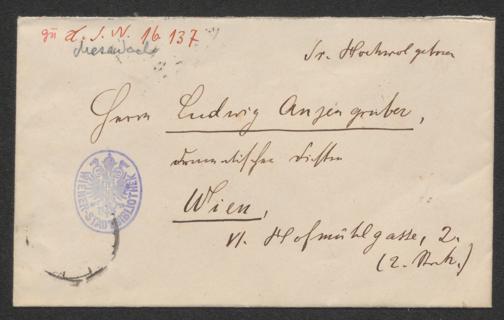 zu H. I. N. 16.137
Sr. Hochwolgeboren
Herrn Ludwig Anzengruber,
dramatischer Dichter
Wien,
VI. Hofmühlgasse, 2.
(2. Stock.)
WIENER-STADTBIBLIOTHEK